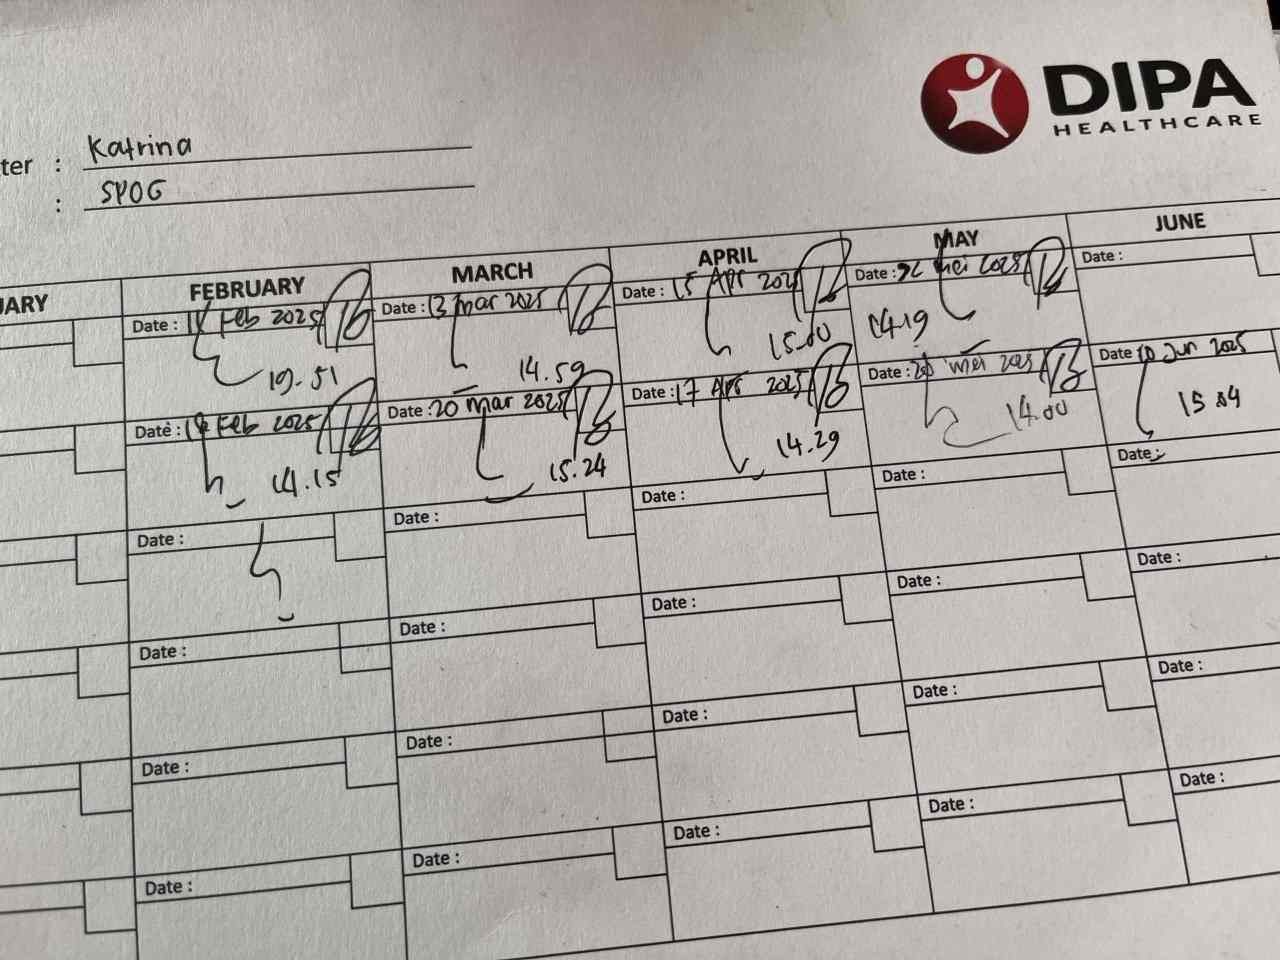 DIPA
HEALTHCARE
ter : Katrina
: SPOG
UARY FEBRUARY MARCH APRIL MAY JUNE
Date : Feb 2025 Date : 13 mar 2025 Date : 15 Apr 2025 Date : mei 2025 Date :
19.51 14.59 15.00 14.19
Date : Feb 2025 Date : 20 mar 2025 Date : 17 Apr 2025 Date : mei 2025 Date 10 Jun 2025
14.15 15.24 14.29 14.00 15 04
Date : Date : Date : Date : Date :
Date : Date : Date : Date : Date :
Date : Date : Date : Date : Date :
Date : Date : Date : Date : Date :